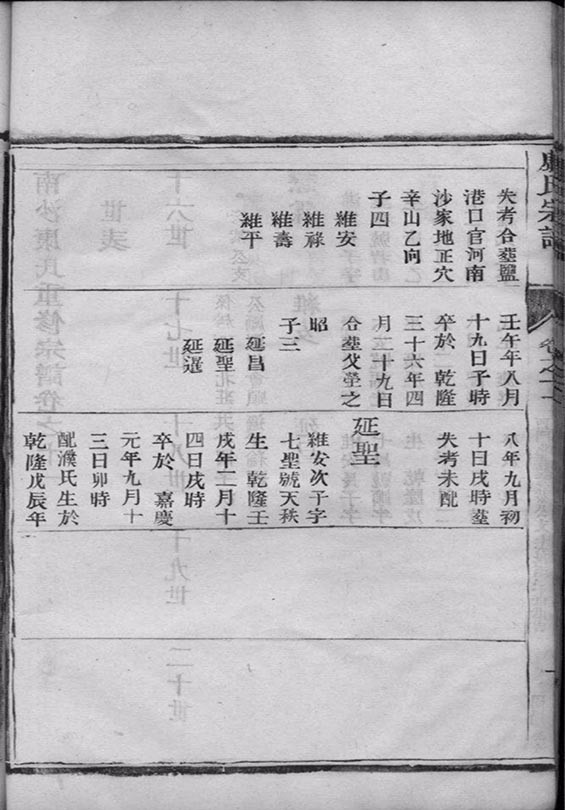 康氏宗譜
卷之
失考合塟鹽
港口官河南
沙家地正穴
辛山乙向
子四
維安
維祿
維壽
維平
壬午年八月
十九日子時
卒於 乾隆
三十六年四
月二十九日
合塟父塋之
昭
子三
延昌
延聖
延暹
八年九月初
十日戌時塟
失考未配
延聖
維安次子字
七聖號天秩
生 乾隆壬
戌年二月十
四日戌時
卒於 嘉慶
元年九月十
三日卯時
配濮氏生於
乾隆戊辰年